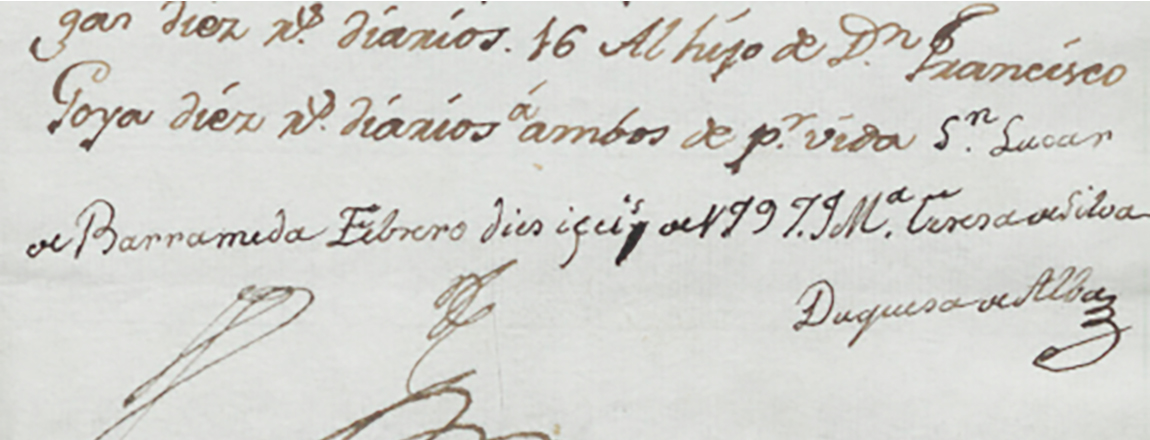 gan diez r.ˢ diarios. 16 Al hijo de D.ⁿ Francisco
Goya diez r.ˢ diarios á ambos de p.ʳ vida S.ⁿ Lucar
de Barrameda Febrero dies i seis de 1797. M.ᵃ Teresa de Silva
Duquesa de Alba